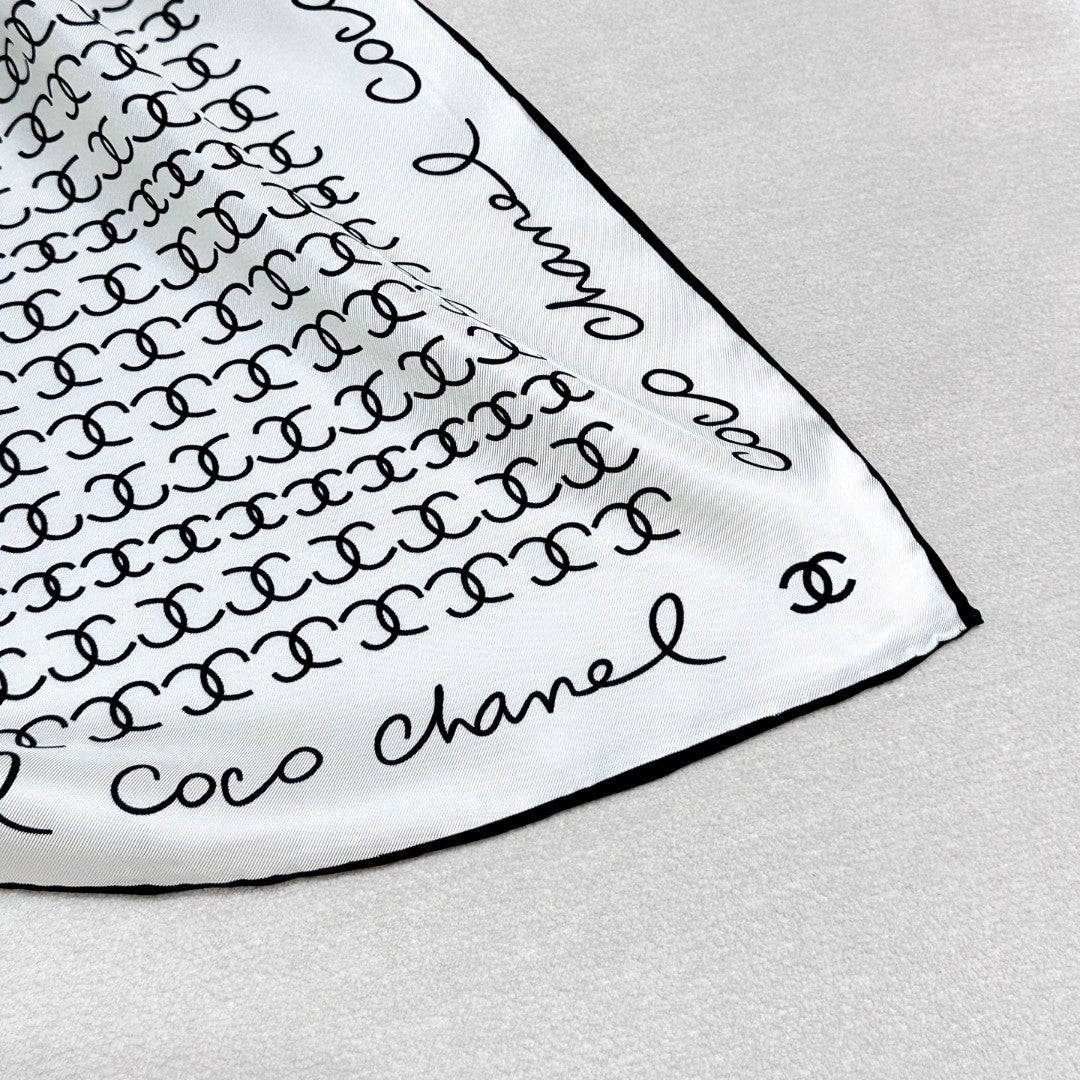 Coco
Chanel
coco
Coco Chanel